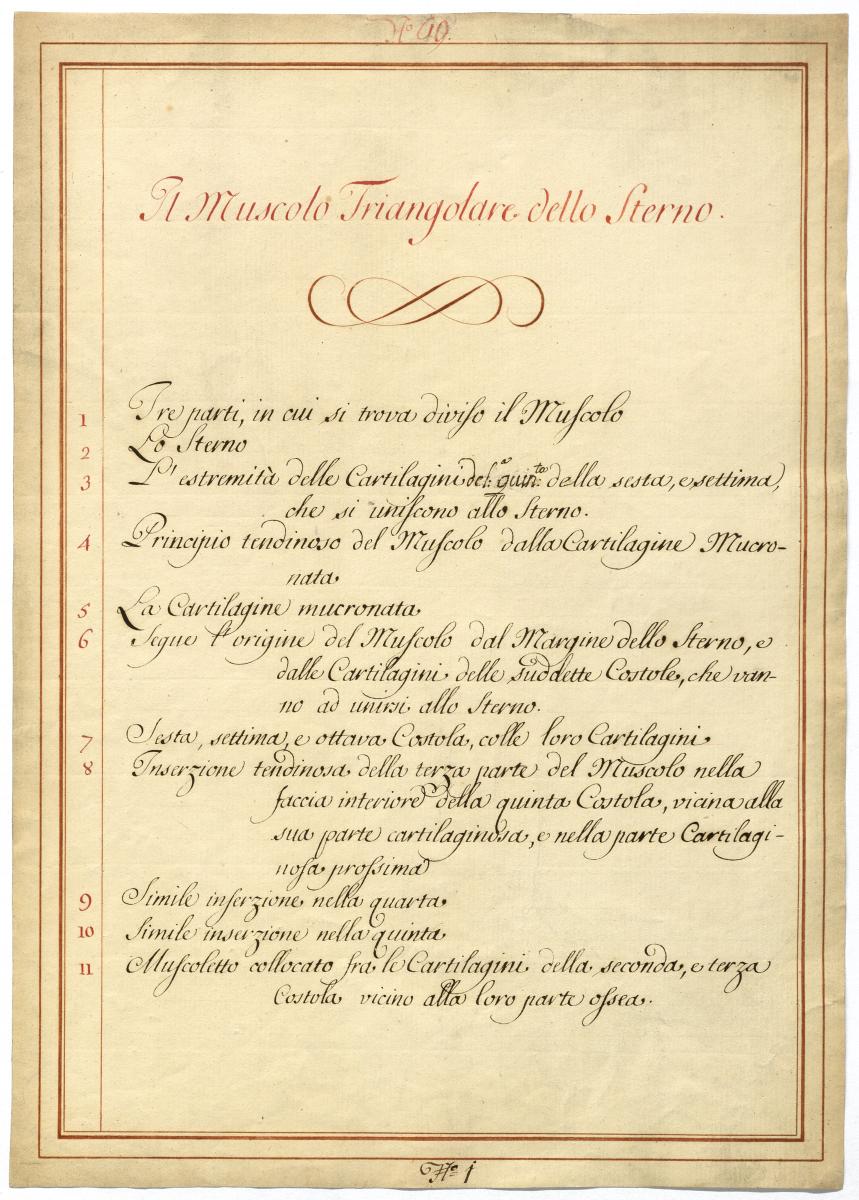 No. 49.
Il Muscolo Triangolare dello Sterno.
1 Tre parti, in cui si trova diviſo il Muſcolo
2 Lo Sterno
3 L'estremità delle Cartilagini del:ª quin:ta della sesta, e settima,
che si uniſcono allo Sterno.
4 Principio tendinoso del Muſcolo dalla Cartilagine Mucro-
nata
5 La Cartilagine mucronata
6 Segue l'origine del Muſcolo dal Margine dello Sterno, e
dalle Cartilagini delle suddette Costole, che van-
no ad unirsi allo Sterno.
7 Sesta, settima, e ottava Costola, colle loro Cartilagini
8 Inserzione tendinosa della terza parte del Muſcolo nella
faccia interiore della quinta Costola, vicina alla
sua parte cartilaginosa, e nella parte Cartilagi-
nosa proſsima
9 Simile inſerzione nella quarta
10 Simile inserzione nella quinta
11 Muscoletto collocato fra le Cartilagini della seconda, e terza
Costola vicino alla loro parte oſsea.
No. 1